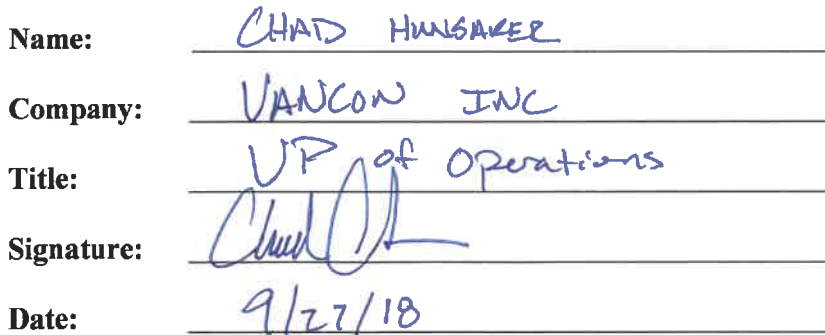 Name: CHAD HUNSAKER
Company: VANCON INC
Title: VP of Operations
Signature: Chad
Date: 9/27/18